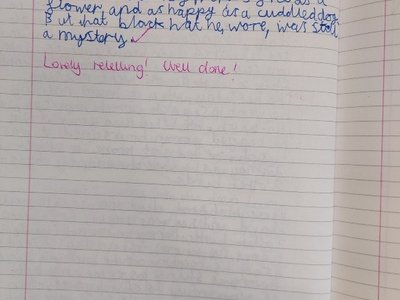 flower, and as happy as a cuddled dog.
But that black hat he, wore, was still
a mystory.
Lovely retelling! Well done!